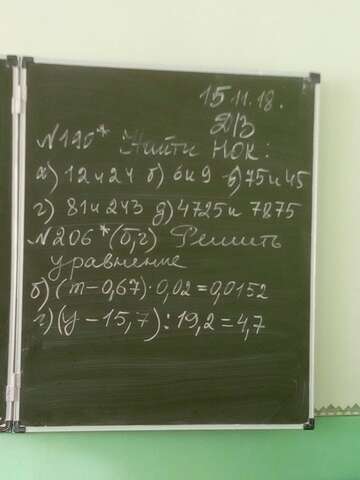 15.11.18.
Д/З
№190* Найти НОК:
а) 12 и 24 б) 6 и 9 в) 75 и 45
г) 81 и 243 д) 4725 и 7875
№206*(б,г) Решить
уравнение
б) (m-0,67)·0,02=0,0152
г) (y-15,7):19,2=4,7